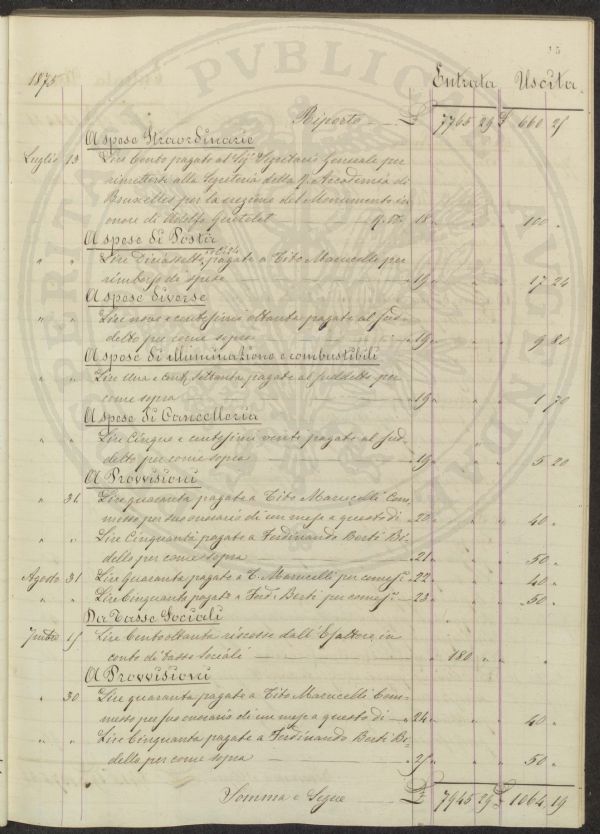 15
1875 Entrata Uscita
Riporto £ 7765 29 £ 660 25
A spese Straordinarie
Luglio 13 Lire Cento pagate al Sig. Segretario Generale per
rimettere alla Segreteria della R. Accademia di
Bruxelles per la erezione del Monumento in
onore di Adolfo Quetelet 18 " " 100 "
A spese di Posta
" " Lire Diciassette pagate a Tito Marucelli per
rimborso di spese 19 " " 17 24
A spese diverse
" " Lire nove e centesimi ottanta pagate al sud-
detto per come sopra 19 " " 9 80
A spese di illuminazione e combustibili
" " Lire Una e cent. settanta pagate al suddetto per
come sopra 19 " " 1 70
A spese di Cancelleria
" " Lire Cinque e centesimi venti pagate al sud-
detto per come sopra 19 " " 5 20
A Provvisioni
" 31 Lire quaranta pagate a Tito Marucelli Com-
messo per suo onorario di un mese a questo dì 20 " " 40 "
" " Lire Cinquanta pagate a Ferdinando Berti Bi-
dello per come sopra 21 " " 50 "
Agosto 31 Lire Quaranta pagate a T. Marucelli per come sì 22 " " 40 "
" " Lire Cinquanta pagate a Ferd. Berti per come sì 23 " " 50 "
Da Tasse Sociali
7mbre 15 Lire Centoottanta riscosse dall'Esattore in
conto di tasse sociali " 180 " " "
A Provvisioni
" 30 Lire quaranta pagate a Tito Marucelli Com-
messo per suo onorario di un mese a questo dì 24 " " 40 "
" " Lire Cinquanta pagate a Ferdinando Berti Bi-
dello per come sopra 25 " " 50 "
Somma e Segue £ 7945 29 £ 1064 19